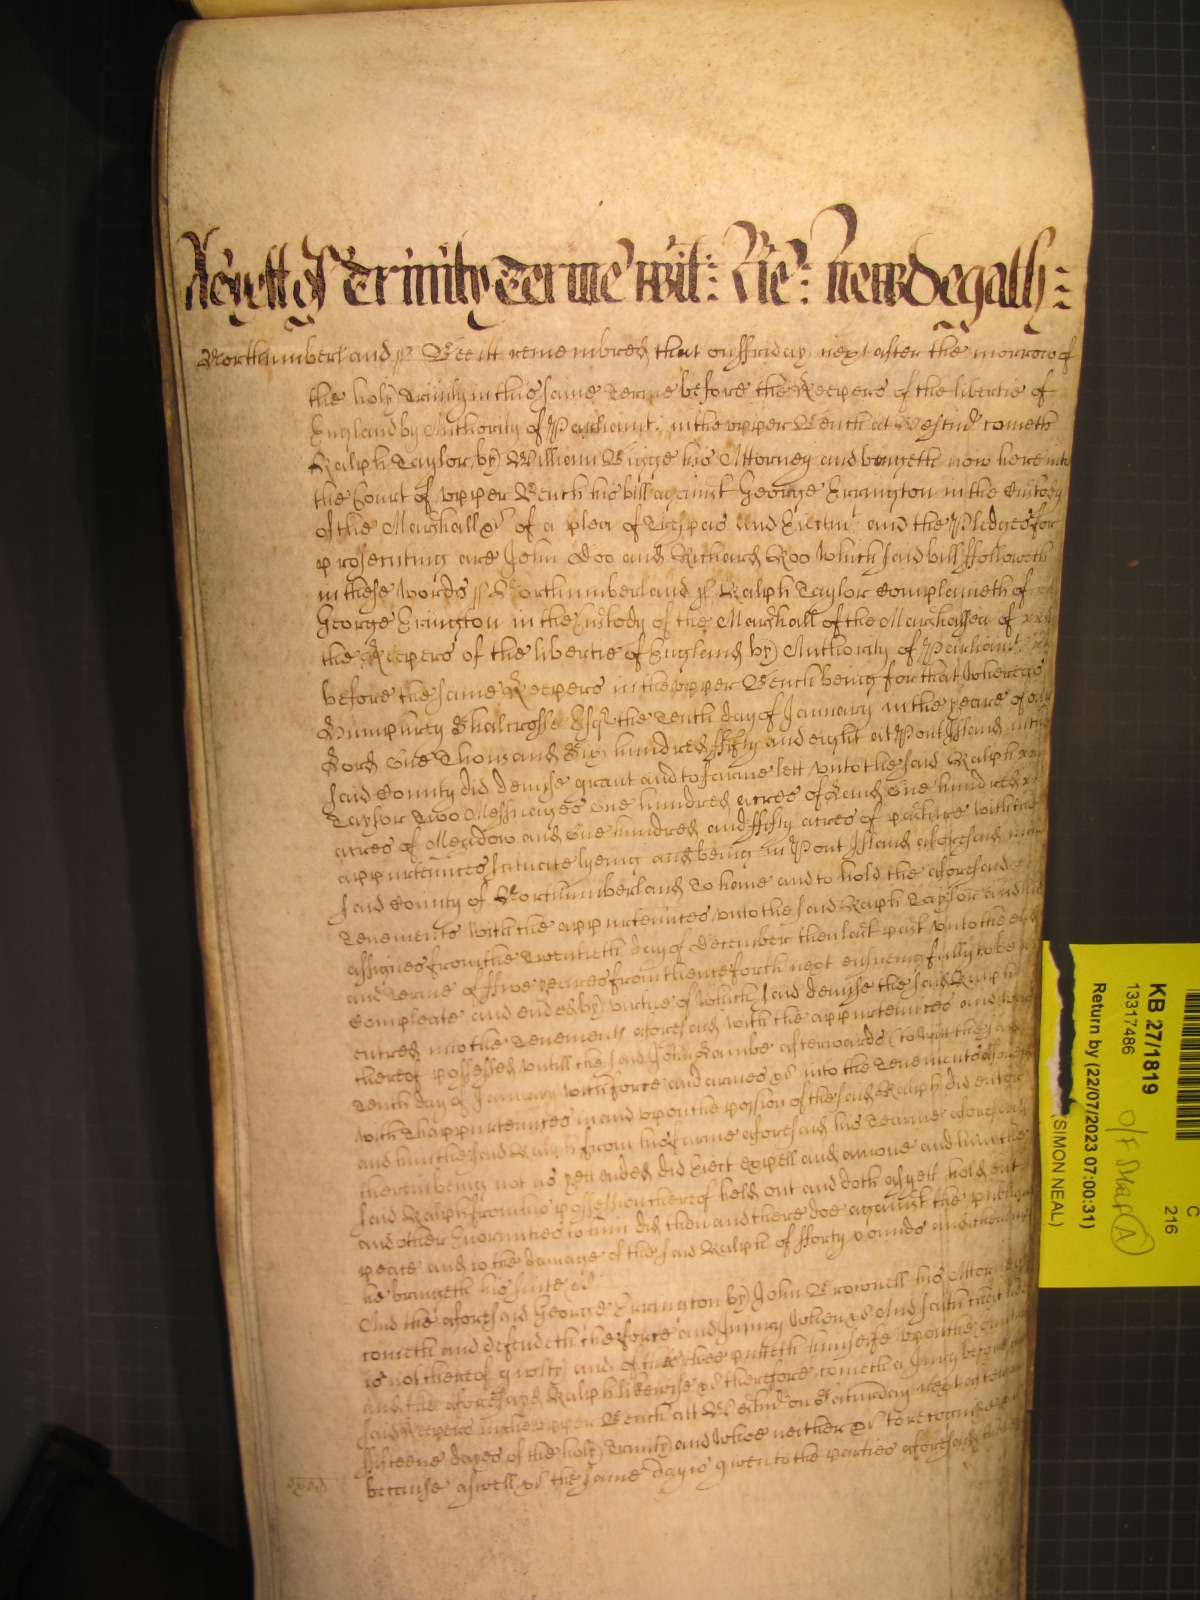 As yett of Trinity Terme wit: Ric: Newdegath:
Northumberland ss Bee itt remembred that on ffriday next after the morrow of
the holy Trinity in this same Terme before the Keepers of the libertie of
England by Authority of Parliamt. in the vpper Bench at Westmr cometh
Ralph Taylor by William Bigge his Attorney and bringeth now here into
the Court of vpper Bench his bill against George Errington in the Custody
of the Marshall &c of a plea of Trespas and Eiectmt and the Pledges for
prosecuting are John Doo and Richard Roo Which said bill ffolloweth
in these words ss Northumberland ss Ralph Taylor Complaineth of
George Erington in the Custody of the Marshall of the Marshalsea of
the Keepers of the libertie of England by Authority of Parliamt
before the same Keepers in the vpper Bench being for that Whereas
Humphrey Shalcrosse Esqr the Tenth day of January in the yeare of our
Lord One Thousand Six hundred ffifty and eight at Pont Island in the
said County did demise grant and to farme lett vnto the said Ralph
Taylor Two Messuages One hundred acres of Land One hundred
acres of Meadow and One hundred and ffifty acres of pasture with the
appurtennces scituate lyeing and being in Pont Island aforesaid in the
said County of Northumberland To have and to hold the aforesaid
Tenements with the appurtennces vnto the said Ralph Taylor and his
assignes from the Twentieth day of December then last past vnto the end
and terme of ffive yeares from thence forth next ensueing fully to be
Compleate and ended by virtue of Which said demise the said Ralph
entred into the Tenements aforesaid with the appurtennces and was
thereof possessed vntill the said John Lambe afterwards (to wit) the said
Tenth day of January with force and armes &c into the Tenements aforesaid
with thappurtennces in and vpon the possion of the said Ralph did enter
and him the said Ralph from his farme aforesaid his Tearme aforesaid
therein being not as yett ended did Eiect expell and amove and him the
said Ralph from his possession thereof held out and doth as yett hold out
and other Enormities to him did then and there doe against the publique
peace and to the damage of the said Ralph of fforty pounds and thereupon
he bringeth his suite &c
And the aforesaid George Errington by John Brownell his Attorney
cometh and defendeth the force and Iniury When &c And saith that hee
is not thereof guilty and of this hee putteth himselfe vpon the Country
and the aforesayd Ralph likewise &c therefore cometh a Jury before the
said Keepers in the vpper Bench att Westmr on Saturday next after
ffifteene dayes of the holy Trinity and Whoe neither &c to recognize
because aswell &c the same day is given to the parties aforesaid there
KB 27/1819
13317486
Return by (22/07/2023 07:00:31)
(SIMON NEAL)
C
216
O/F Map (A)